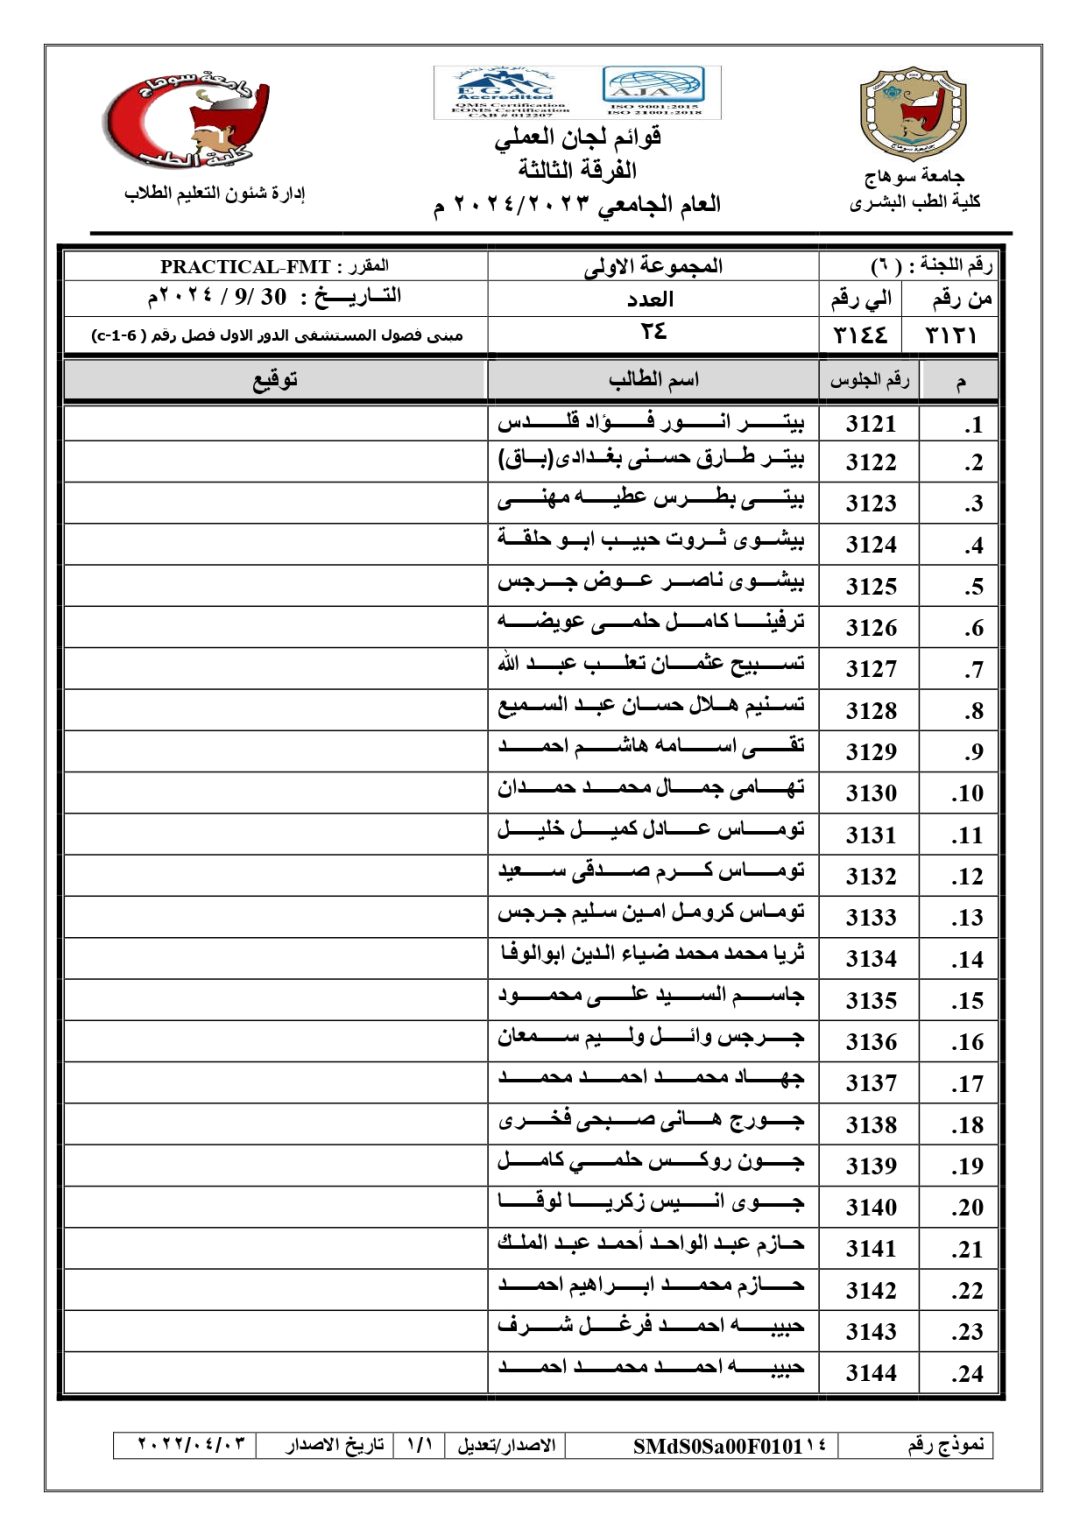 جامعة سوهاج
كلية الطب
إدارة شئون التعليم الطلاب
EGAC
Accredited
QMS Certification
EOMS Certification
CAB # 012207
AJA
ISO 9001:2015
ISO 21001:2018
قوائم لجان العملي
الفرقة الثالثة
العام الجامعي ٢٠٢٤/٢٠٢٣ م
جامعة سوهاج
كلية الطب البشرى
رقم اللجنة : ( ٦) المجموعة الاولى المقرر : PRACTICAL-FMT
من رقم الي رقم العدد التاريخ : 30 /9 / ٢٠٢٤م
٣١٢١ ٣١٤٤ ٢٤ مبنى فصول المستشفى الدور الاول فصل رقم ( c-1-6)
م رقم الجلوس اسم الطالب توقيع
1. 3121 بيتر انور فؤاد قلدس
2. 3122 بيتر طارق حسنى بغدادى(باق)
3. 3123 بيتى بطرس عطيه مهنى
4. 3124 بيشوى ثروت حبيب ابو حلقة
5. 3125 بيشوى ناصر عوض جرجس
6. 3126 ترفينا كامل حلمى عويضه
7. 3127 تسبيح عثمان تعلب عبد الله
8. 3128 تسنيم هلال حسان عبد السميع
9. 3129 تقى اسامه هاشم احمد
10. 3130 تهامى جمال محمد حمدان
11. 3131 توماس عادل كميل خليل
12. 3132 توماس كرم صدقى سعيد
13. 3133 توماس كرومل امين سليم جرجس
14. 3134 ثريا محمد محمد ضياء الدين ابوالوفا
15. 3135 جاسم السيد على محمود
16. 3136 جرجس وائل وليم سمعان
17. 3137 جهاد محمد احمد محمد
18. 3138 جورج هانى صبحى فخرى
19. 3139 جون روكس حلمي كامل
20. 3140 جوى انيس زكريا لوقا
21. 3141 حازم عبد الواحد أحمد عبد الملك
22. 3142 حازم محمد ابراهيم احمد
23. 3143 حبيبه احمد فرغل شرف
24. 3144 حبيبه احمد محمد احمد
نموذج رقم SMdS0Sa00F0101١٤ الاصدار/تعديل ١/١ تاريخ الاصدار ٢٠٢٢/٠٤/٠٣